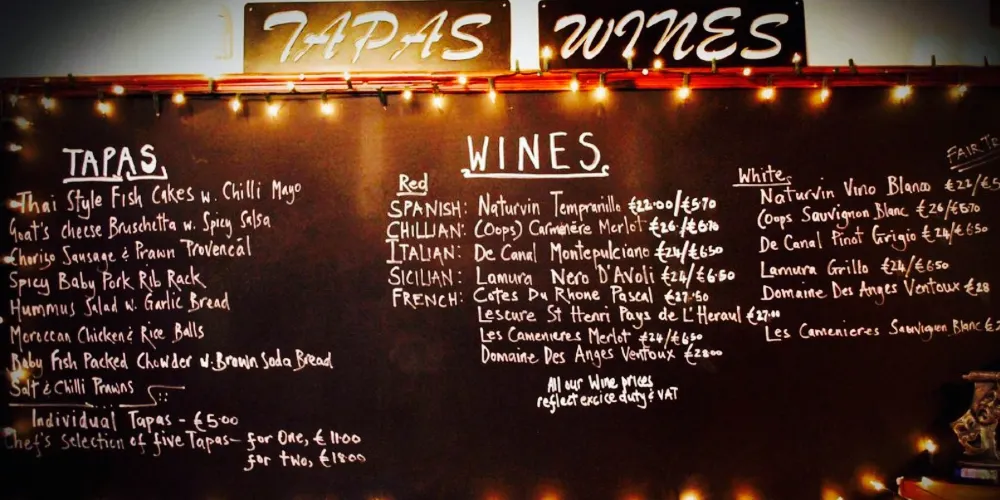 TAPAS
WINES
TAPAS.
Thai Style Fish Cakes w. Chilli Mayo
Goat's cheese Bruschetta w. Spicy Salsa
Choriso Sausage & Prawn Provencal
Spicy Baby Pork Rib Rack
Hummus Salad w. Garlic Bread
Moroccan Chicken & Rice Balls
Baby Fish Packed Chowder w. Brown Soda Bread
Salt & Chilli Prawns
Individual Tapas - €5.00
Chef's Selection of five Tapas - for One, € 11.00
for two, €18.00
WINES.
Red
SPANISH: Naturvin Tempranillo €22.00/5.70
CHILLIAN: (Oops) Carmenere Merlot €26/€6.70
ITALIAN: De Canal Montepulciano €24/6.50
SICILIAN: Lamura Nero D'Avoli €24/€6.50
FRENCH: Cotes Du Rhone Pascal €27.50
Lescure St Henri Pays de L'Heraul €27.00
Les Camenieres Merlot €24/6.50
Domaine Des Anges Ventoux €28.00
All our Wine prices
reflect excice duty & VAT
White,
FAIR
Naturvin Vino Blanco €22/
Oops Sauvignon Blanc €26/6.70
De Canal Pinot Grigio €24/6.50
Lamura Grillo €24/€6.50
Domaine Des Anges Ventoux €28
Les Camenieres Sauvignon Blanc